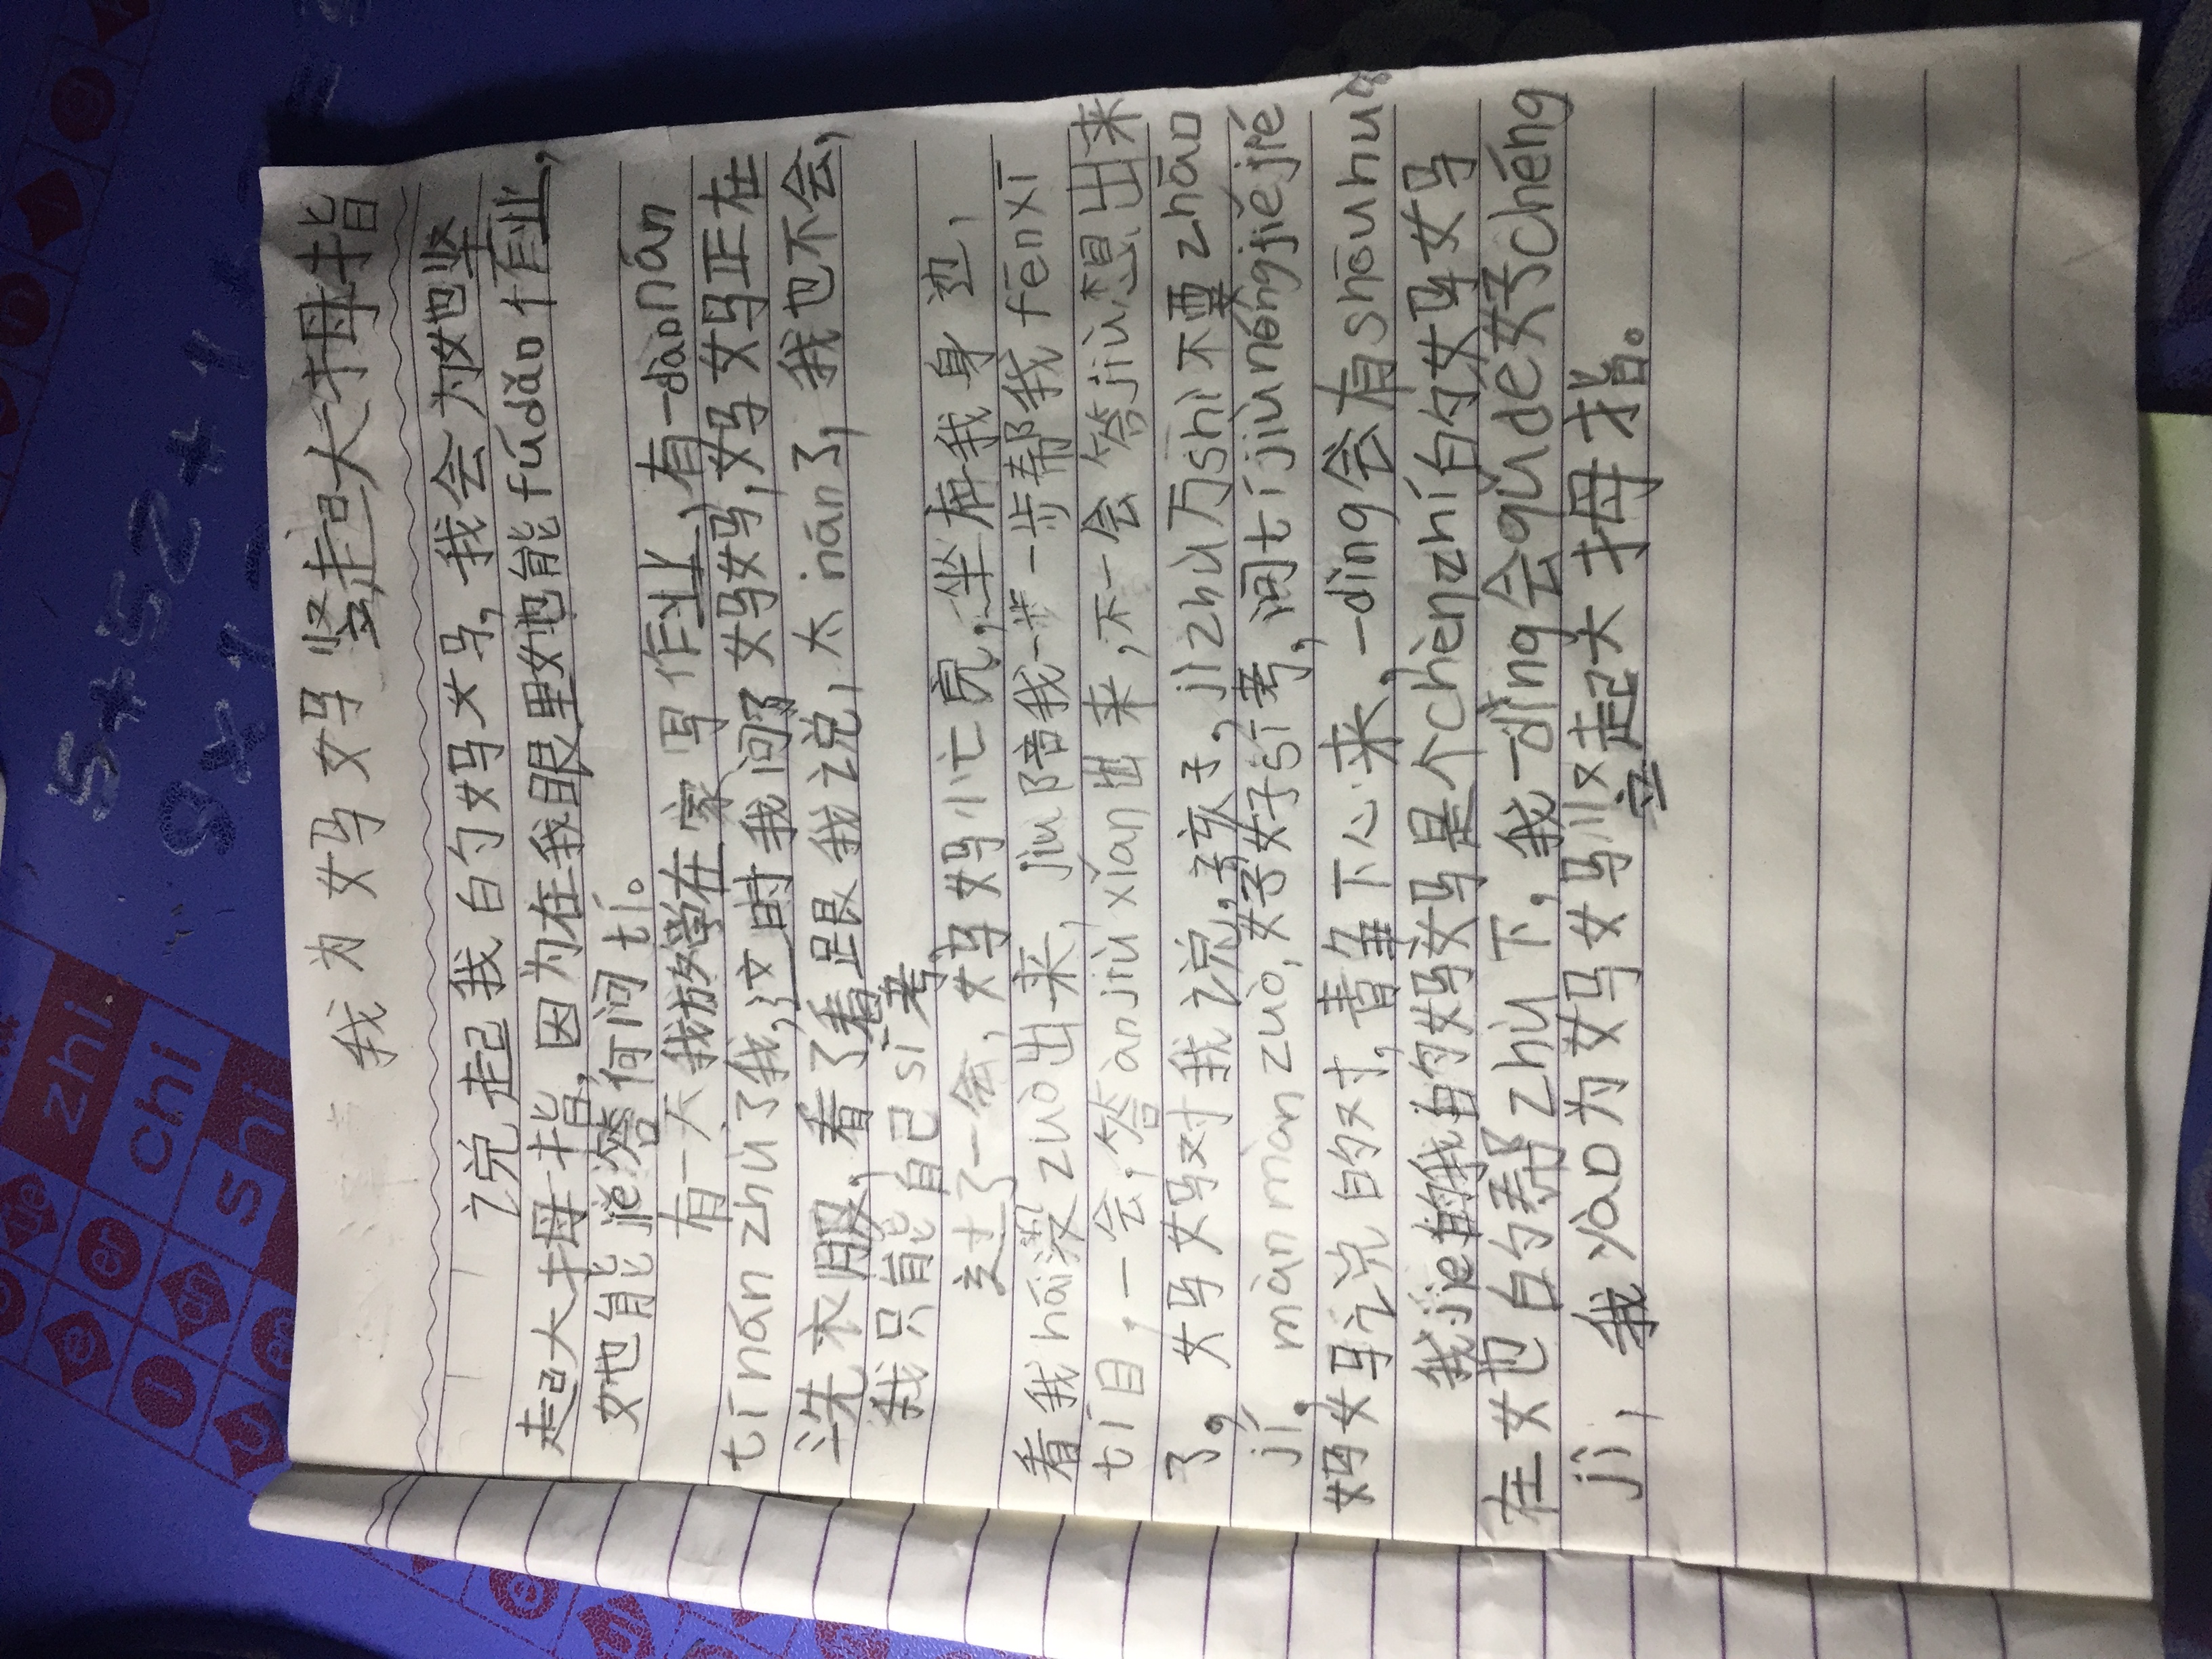 我为妈妈竖起大拇指
说起我的妈妈,我会为她竖
起大拇指,因为在我眼里她能fúdǎo作业,
她能jiě答何问tí。
有一天我放学在家写作业,有一dàonán
tínán zhù了我,这时我问了妈妈,妈妈正在
洗衣服,看了看跟我说,太nán了,我也不会,
我只能自己sī考,
过了一会,妈妈忙完,坐在我身边,
看我hái没zuò出来,jiù陪我一步一步帮我fēnxī
tí目,一会,答ànjiù xiǎn出来,不一会答jiù想出来
了。妈妈对我说,孩子,jìzhù万shì不要zhāo
jí。màn màn zuò,好好sī考,问tí jiù néng jiějié
妈妈说的对,静下心来,一dìng会有shōuhuò
我jie的我的妈妈是个chènzhí的妈妈
在她的帮zhù下,我一dìng会qǔde好chéng
jì,我yào为妈妈竖起大拇指。
zhi
chi
shi
5+52+